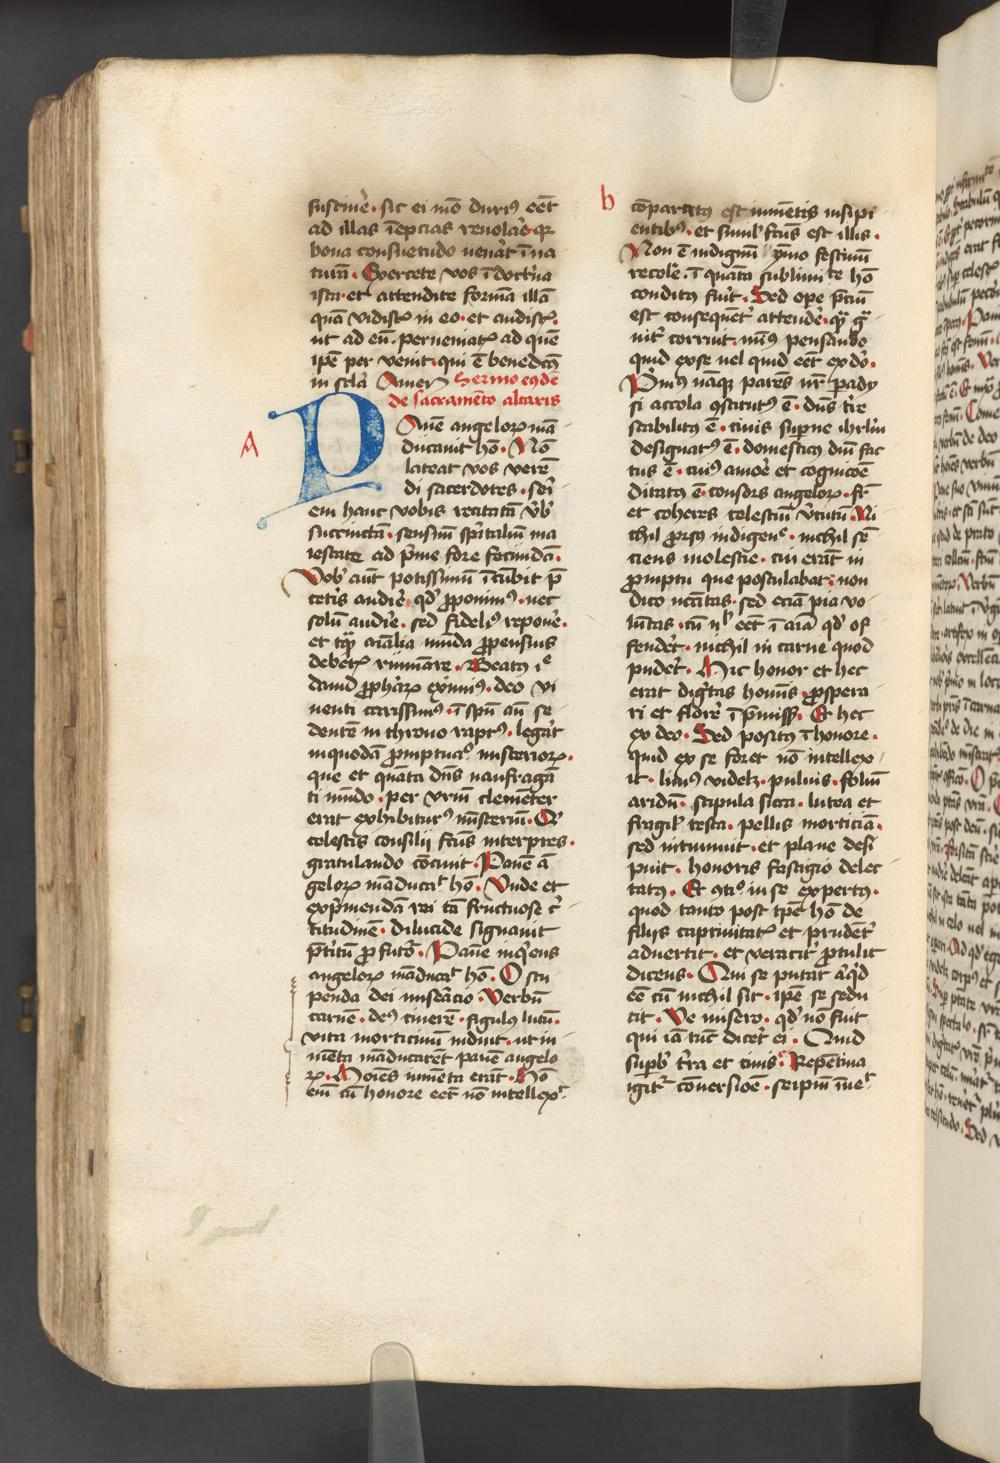 sustinere · sic ei mō durꝰ eēt
ad illas īeptias reuolare qͣ
bona consuetudo uenit ī na
turā · Exercete vos ī doctⁱna
ista · et attendite formā illā
quā vidistꝭ in eo · et audistꝭ ·
ut ad eū perueniatꝭ ad quē
ipē per venit · qui ē benedictꝰ
in scła Amen Sermo eiꝰdē
de sacramēto altaris
A
Panē angeloꝝ mā
ducauit hō · Nō
lateat vos verē
di sacerdotes · sen
em hanc vobis recitatā vb
succinctā · sensuū spiritaliū ma
iestate ad pͥme fore fecūdā ·
Vob aūt potissimū īcūbit p̄
ceteris audire · qd ꝓponimꝰ · nec
solū audire · sed fidelꝰ repone ·
et tqͣ aīalia mūda ꝓpensius
debetꝭ rumiare · Beatꝰ
dauid ꝓphaꝝ eximiꝰ · deo vi
uenti carissimꝰ · ī spū
dentē in throno raptꝰ · legat
inquodā misterioꝝ ·
que et quāta dn̄s naufragā
ti mūdo · per vrm̄ clementer
erat exhibiturꝰ misteriū · Et
celestis consilii fctūs interpres ·
gratulando cōcinit · Panē ā
geloꝝ māducaͭ hō · Vnde et
expͥmendā rei tā fructuose
titudinē · dilucide signauit
p̄titū ꝓ futō · Panē inqͥens
angeloꝝ māducaͭ hō · O stu
penda dei miseācio · Verbū
carnē · deꝰ cinerē · figulꝰ lutū ·
vita morticinū induit · ut iu
mēta māducarēt panē angelo
ꝝ · Hoīes iumēta erāt · Hō
em̄ cū honore eēt nō intellexͭ
b
cōparatꝰ est iumētis insipi
entibꝰ · et simil fctūs est illis ·
Non ē indignū ymo festiuū
recole · ī quāta sublimite hō
conditꝰ fuit · Sed ope p̄ciū
est consequenter attende · qͣ
nit corruit · minꝰ pensando
quid exse uel quid eēt ex dō ·
Primꝰ nāqꝫ parēs nr̄ ꝑady
si accola ꝯstitutꝰ ē · dn̄s tͥre
stabilitꝰ ē · ciuis supͥne ihrlm̄
designatꝰ ē · domesticꝰ dn̄i fac
tus ē · cuiꝰ amore et cognicōē
ditatꝰ ē · consors angeloꝝ · fr̄
et coheres celestiū vͥtutū · Ni
chil ꝓrsꝰ indigens · nichil sē
ciens molestie · cui erāt in
ꝓmptu que postulabat · non
dico necītas · sed eciā pia vo
lūtas · cū nͥl eēt ī aīa qd of
fenderet · nichil in carne quod
puderet · Hic honor et hec
erat digͥtas hoīnis · ꝓspera
ri et florere ī p̄missꝭ · Et hec
ex deo · Sed positꝰ ī honore ·
quid ex se foret nō intellexi
it · limꝰ videlꝫ · puluis · foliū
aridū · stipula sicca · lutea et
fragilꝭ testa · pellis morticīa ·
sed intumuit · et plane desi
puit · honoris fastigio delec
tatꝰ · Et ꝯtⁱo in se expertꝰ ·
quod tanto post tpē hō de
filiis captiuitatꝭ et prudenter
aduertit · et veraciter ꝓtulit
dicens · Qui se putat aliqͥd
eē cū nichil sit · ipē se sedu
cit · Ve misero · qd nō fuit
qui iā tūc diceret ei · Quid
supb tͥra et cinis · Repentina
igitͬ cōuersiōē · seipm̄